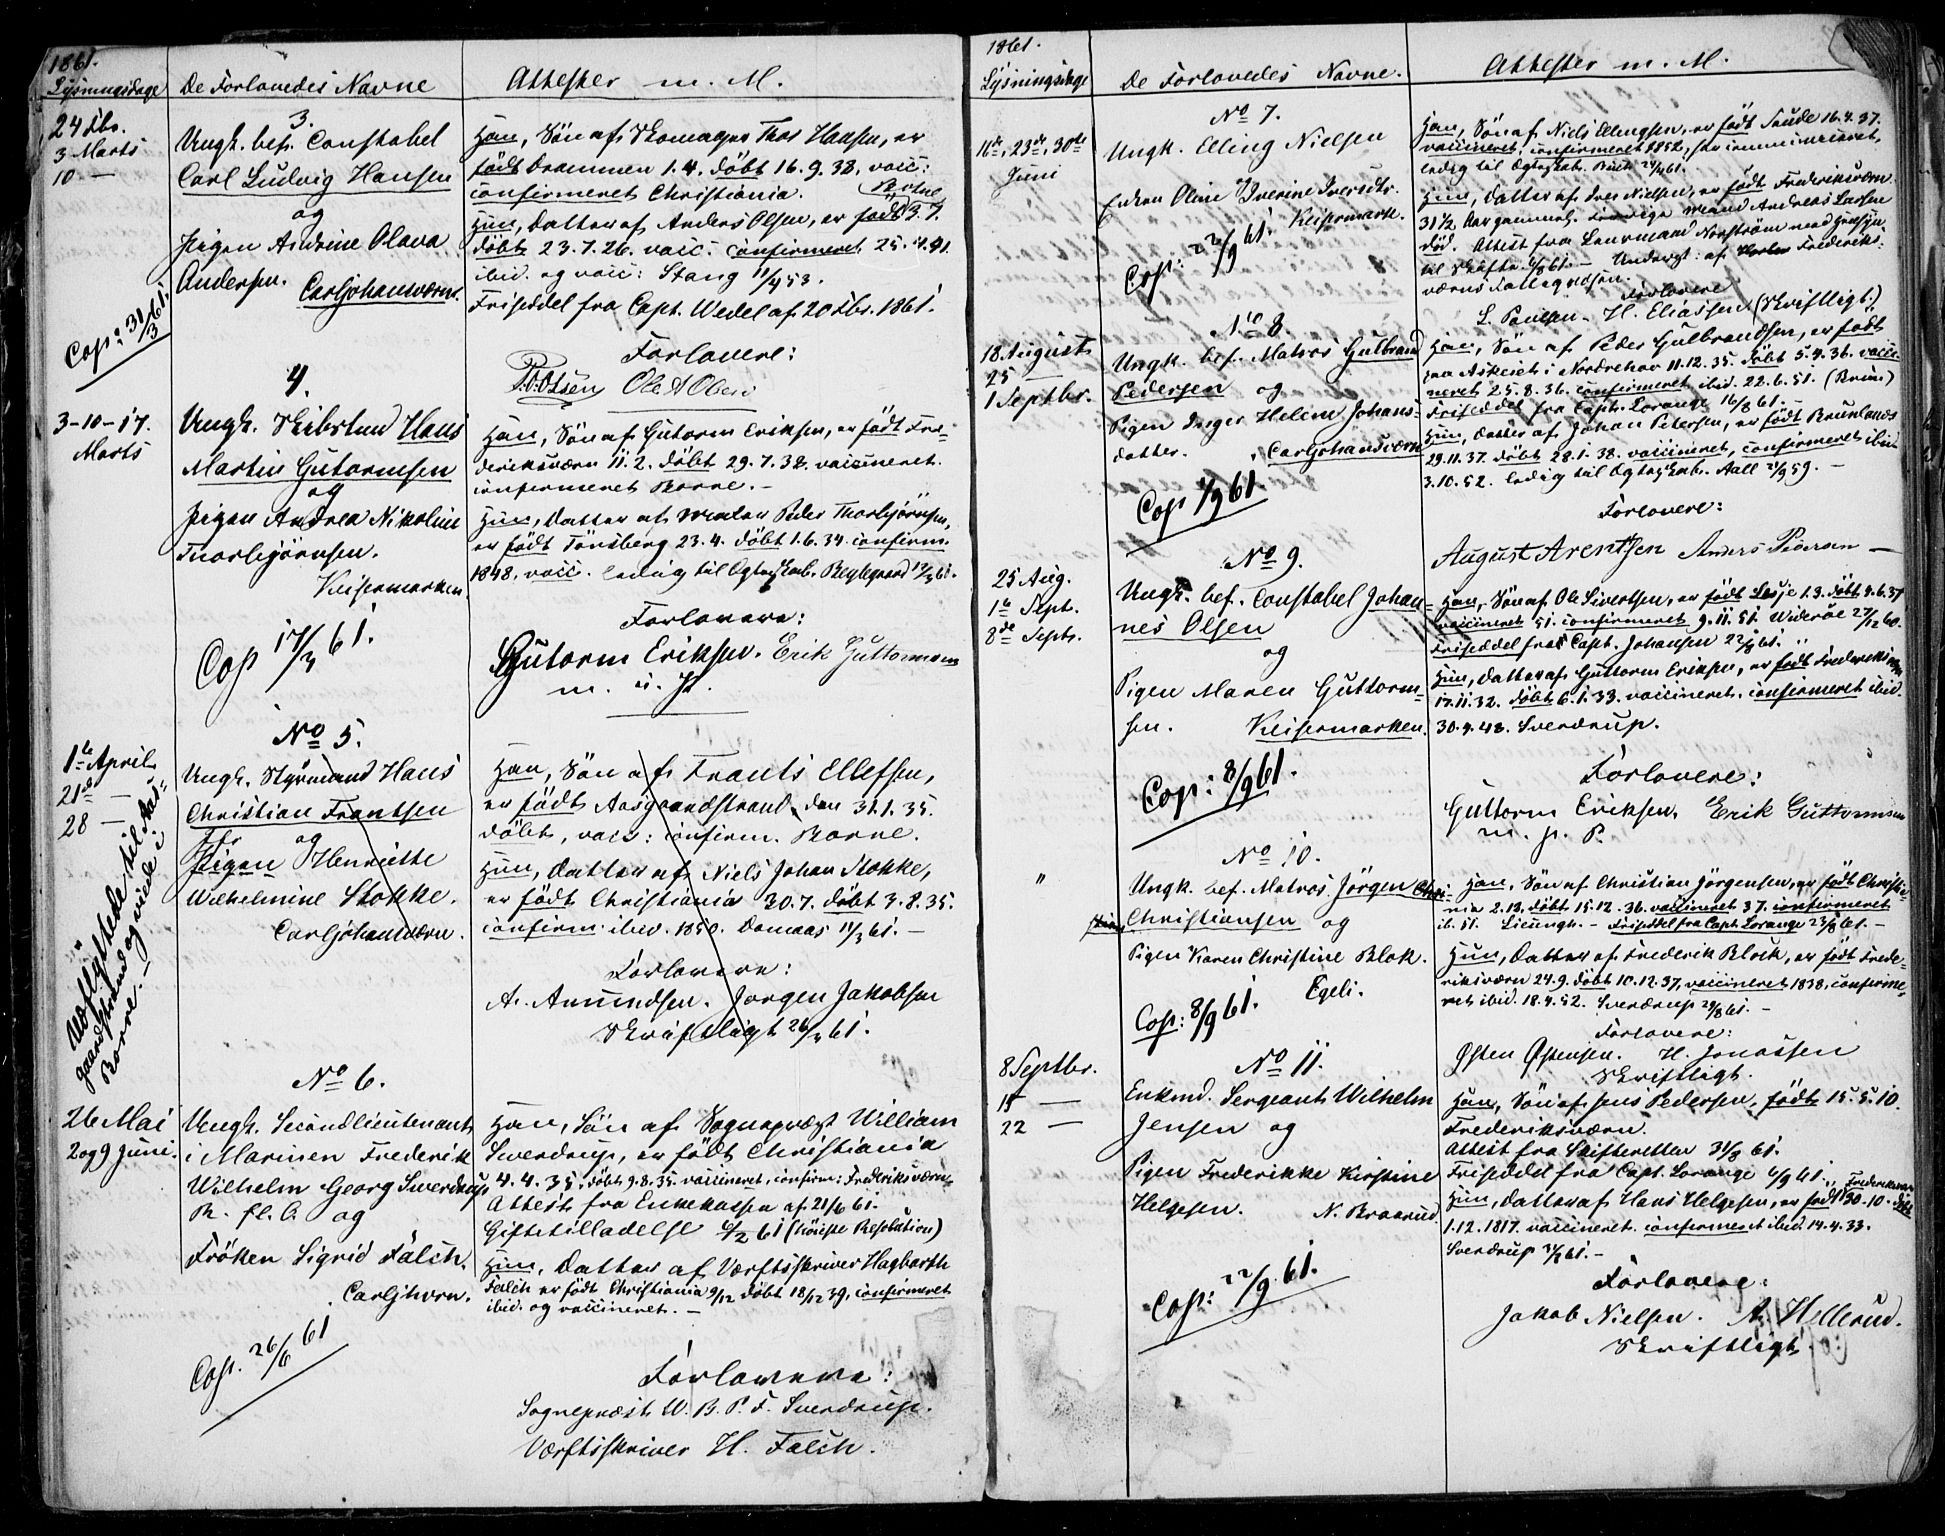 1861.
Lysningsdage
De Forlovedes Navne
Attester m. M.
24 Fbr.
3 Marts
10 —
3.
Ungk. bef. Constabel
Carl Ludvig Hansen
og
Pigen Andrine Olava
Andersen. Carljohansværn.
Cop: 31/3 61.
Han, Søn af Skomager Thor Hansen, er
født Drammen 1.4. døbt 16.9.38, vacc:
confirmeret Christiania.
Hun, Datter af Anders Olsen, er født Borne 3.7.
døbt 23.7.26. vacc: confirmeret 25.4.41.
ibid. og vacc: Stang 11/4 53.
Friseddel fra Capt. Wedel af 20 Fbr. 1861.
Forlovere:
P. Olsen Ole A Olsen
4.
3-10-17.
Marts
Ungk. Skibstmd Hans
Martin Gutormsen
og
Pigen Andrea Nikoline
Thorbjørnsen.
Keisermarken
Cop 17/3 61.
Han, Søn af Gutorm Eriksen, er født Fre-
deriksværn 11.2. døbt 29.7.32. vaccineret.
confirmeret Borre. —
Hun, Datter af Peder Thorbjørnsen,
er født Tönsberg 23.4. døbt 1.6.34. confirm.
1848. vacc. ledig til Ægteskab.
Forlovere:
Gutorm Eriksen. Erik Guttormsen
m. i. P.
No 5.
1ste April
21de —
28 —
Ungk. Styrmand Hans
Christian Frantsen
og
Pigen Henriette
Wilhelmine Stokke.
Carljohansværn.
Udflyttede til Aas-
gaardstrand og viede i
Borre. —
Han, Søn af Frants Ellefsen,
er født Aasgaardstrand den 31.1.35.
døbt, vacc: confirm. Borre.
Hun, Datter af Niels Johan Stokke,
er født Christiania 30.7. døbt 3.8.35.
confirm: ibid. 1850. Damaas 11/3 61. —
Forlovere:
A. Amundsen. Jørgen Jakobsen
Skriftligt 26/3 61.
No 6.
26 Mai
2 og 9 Juni.
Ungk. Secondlieutenant
i Marinen Frederik
Wilhelm Georg Sverdrup
og
Frøken Sigrid Falch.
Carljhvrn.
Cop. 26/6 61
Han, Søn af Sognepræst William
Sverdrup, er født Christiania
4.4.35. døbt 9.8.35. vaccineret, confirm: Frederiksværn
Attest fra Enkekassen af 21/6 61.
Giftetilladelse 4/2 61 (Kongelig Resolution)
Hun, Datter af Værftsskriver Hagbarth
Falch er født Christiania 9/12 døbt 18/12 39, confirmeret
ibid. og vaccineret. —
Forlovere:
Sognepræst W. B. P. F. Sverdrup.
Værftsskriver H. Falch.
1861.
Lysningsdage
De Forlovedes Navne.
Attester m. M.
16de, 23de, 30de
Juni
No 7.
Ungk. Elling Nielsen
Enken Oline Iverine Iversdtr.
Keisermark.
Cop: 22/9 61.
Han, Søn af Niels Ellingsen, er født Saude 16.4.37.
vaccineret, confirmeret 1852,
ledig til Ægteskab.
Hun, Datter af Iver Nielsen, er født Frederiksværn
31 1/2 Aar gammel. Forrige Mand Andreas Larsen
død. Attest fra Norström med Hensyn
til Skifte 4/6 61. —
Forlovere
L. Paulsen. H. Eliassen (Skriftligt.)
No 8
18 August
25 —
1 Septbr.
Ungk. bef. Matros Gulbrand
Pedersen og
Pigen Inger Helene Johans-
datter. Carljohansværn
Cop 1/9 61.
Han, Søn af Peder Gulbrandsen, er født
paa Askeiet i Norderhov 11.12.35. døbt 5.4.36. vacci-
neret 25.8.36. confirmeret ibid. 22.6.51. (Bruun)
Friseddel fra Capt. Lorange 16/8 61. —
Hun, Datter af Johan Petersen, er født Brunlanæs
29.11.37. døbt 28.1.38. vaccineret, confirmeret ibid.
3.10.52. ledig til Ægteskab. Aall 21/9 59. —
Forlovere:
August Arentsen Anders Pedersen —
No 9.
25 Aug.
1te Sept.
8de Septr.
Ungk. bef. Constabel Johan-
nes Olsen
og
Pigen Maren Guttorm-
sen. Keisermarken.
Cop: 8/9 61.
Han, Søn af Ole Sivertsen, er født Lesje 1.3. døbt 9.6.37
vaccineret 51. confirmeret 9.11.51. Widerøe 27/12 60.
Friseddel fra Capt. Johansen 22/8 61.
Hun, Datter af Guttorm Eriksen, er født Frederiksværn
17.11.32. døbt 6.1.33. vaccineret. confirmeret ibid.
30.4.48. Sverdrup.
Forlovere:
Guttorm Eriksen. Erik Guttormsen
m. p. P.
No 10.
"
Ungk. bef. Matros Jørgen
Christiansen og
Pigen Karen Christine Blok.
Egeli.
Cop: 8/9 61.
Han, Søn af Christian Jørgensen, er født Christia-
nia 2.12. døbt 15.12.36. vaccineret 37. confirmeret
ib. 51. — Friseddel fra Capt. Lorange 23/8 61. —
Hun, Datter af Frederik Block, er født Frede-
riksværn 24.9. døbt 10.12.37, vaccineret 1838, confirme-
ret ibid. 18.4.52. Sverdrup 29/8 61. —
Forlovere:
Østen Østensen. H. Jonassen
Skriftligt.
No 11.
8 Septbr.
15 —
22 —
Enkmd. Sergeant Wilhelm
Jensen og
Pigen Frederikke Kirstine
Helgesen. N. Braarud
Cop: 22/9 61.
Han, Søn af Jens Pedersen, født 15.5.10.
Frederiksværn.
Attest fra Skifteretten 31/8 61.
Friseddel fra Capt. Lorange 4/9 61. —
Hun, Datter af Hans Helgesen, er født Frederiksværn 30.10. døbt
1.12.1817. vaccineret. confirmeret ibid. 14.4.33.
Sverdrup 31/8 61. —
Forlovere:
Jakob Nielsen. A. Hellerud.
Skriftligt